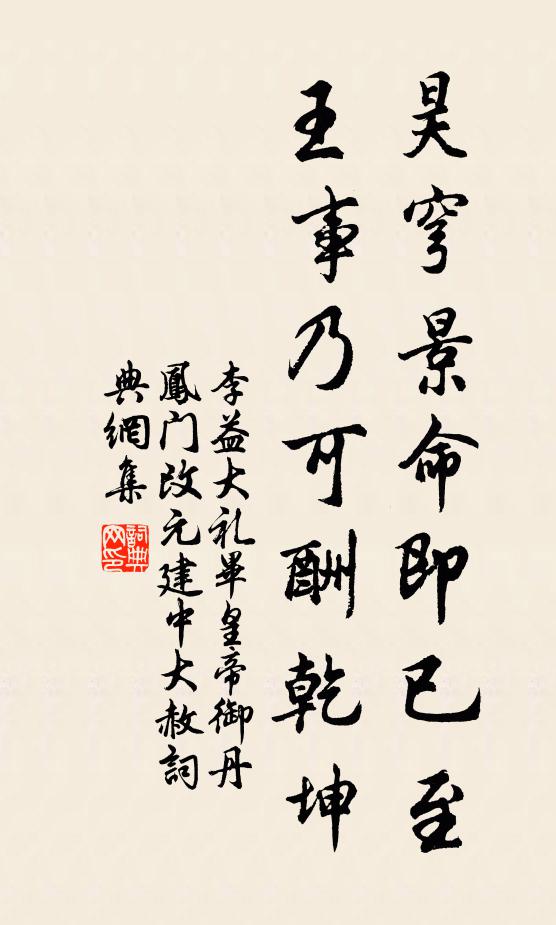 昊穹景命即已至
王事乃可酬乾坤
李益大礼畢皇帝御丹
鳳门改元建中大赦詞
典網集
詞典网印